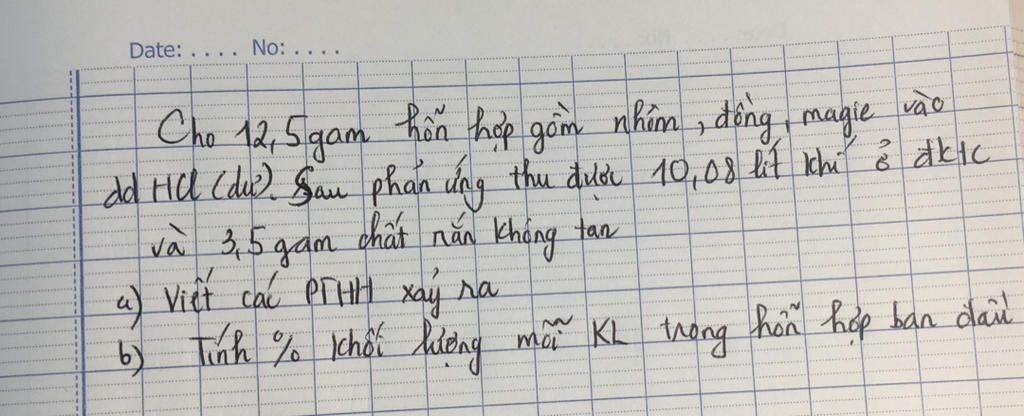 Date: .... No: ....
Cho 12,5gam hỗn hợp gồm nhôm, đồng, magie vào
dd HCl (dư). Sau phản ứng thu được 10,08 lít khí ở đktc
và 3,5gam chất rắn không tan
a) Viết các PTHH xảy ra
b) Tính % khối lượng mỗi KL trong hỗn hợp ban đầu